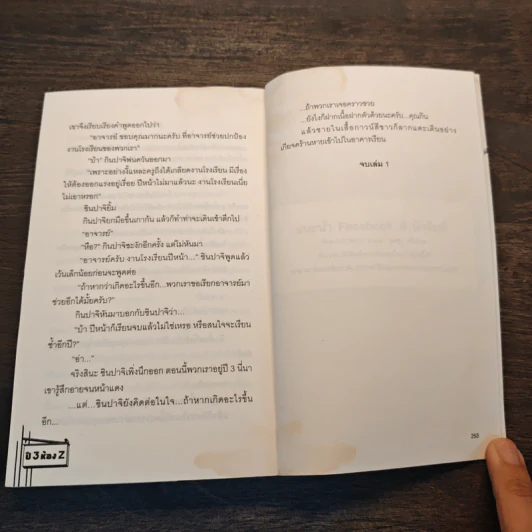 เขาจึงเรียบเรียงคำพูดออกไปว่า
"อาจารย์ ขอบคุณมากนะครับ ที่อาจารย์ช่วยปกป้อง
งานโรงเรียนของพวกเรา"
"บ้า" กินปาจิพ่นควันออกมา
"เพราะอย่างงี้แหละครูถึงได้เกลียดงานโรงเรียน มีเรื่อง
ให้ต้องออกแรงอยู่เรื่อย ปีหน้าไม่มาแล้วนะ งานโรงเรียนเนี่ย
ไม่เอาหรอก"
ชินปาจิยิ้ม
กินปาจิยกมือขึ้นเกาก้น แล้วก็ทำท่าจะเดินเข้าตึกไป
"อาจารย์"
"หือ?" กินปาจิชะงักอีกครั้ง แต่ไม่หันมา
"อาจารย์ครับ งานโรงเรียนปีหน้า..." ชินปาจิพูดแล้ว
เว้นเล็กน้อยก่อนจะพูดต่อ
"ถ้าหากว่าเกิดอะไรขึ้นอีก...พวกเราขอเรียกอาจารย์มา
ช่วยอีกได้มั้ยครับ?"
กินปาจิหันมาบอกกับชินปาจิว่า...
"บ้า ปีหน้าก็เรียนจบแล้วไม่ใช่เหรอ หรือสนใจจะเรียน
ซ้ำอีกปี?"
"อ่า..."
จริงสินะ ชินปาจิเพิ่งนึกออก ตอนนี้พวกเราอยู่ปี 3 นี่นา
เขารู้สึกอายจนหน้าแดง
...แต่...ชินปาจิยังคิดต่อในใจ...ถ้าหากเกิดอะไรขึ้น
อีก...
ปี 3 ห้อง Z
...ถ้าพวกเราเจอคราวซวย
...ยังไงก็ฝากเนื้อฝากตัวด้วยนะครับ...คุณกิน
แล้วชายในเสื้อกาวน์สีขาวก็ลากแตะเดินอย่าง
เกียจคร้านหายเข้าไปในอาคารเรียน
จบเล่ม 1
253